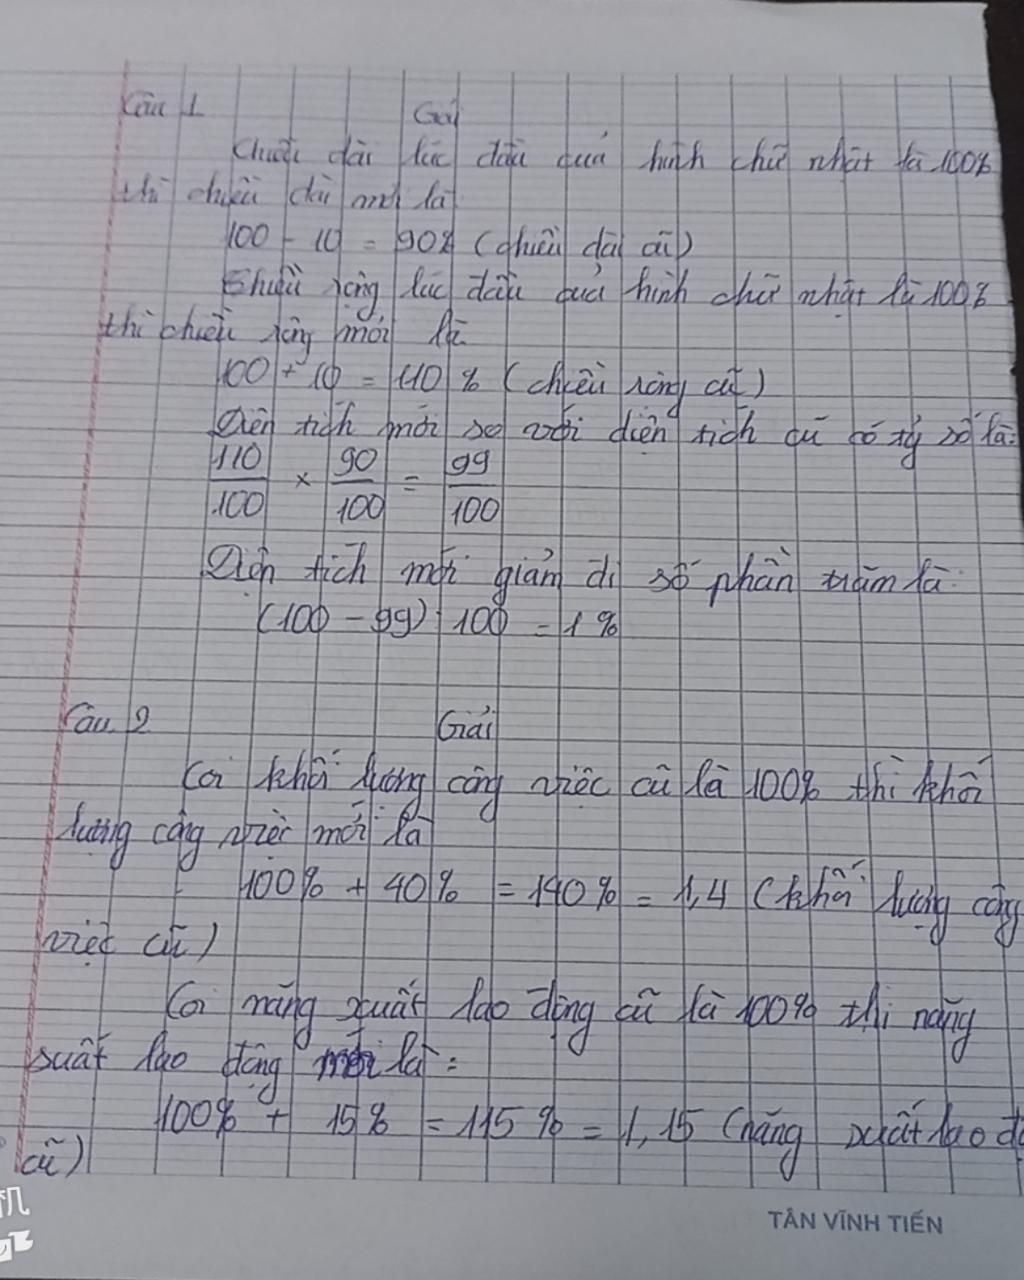 Câu 1 Giải
Chiều dài lúc đầu của hình chữ nhật là 100%
thì chiều dài mới là
100 - 10 = 90% (chiều dài cũ)
Chiều rộng lúc đầu của hình chữ nhật là 100%
thì chiều rộng mới là
100 + 10 = 110 % (chiều rộng cũ)
Diện tích mới so với diện tích cũ có tỷ số là:
110/100 × 90/100 = 99/100
Diện tích mới giảm đi số phần trăm là:
(100 - 99) : 100 = 1 %
Câu 2 Giải
Coi khối lượng công việc cũ là 100% thì khối
lượng công việc mới là
100% + 40% = 140% = 1,4 (khối lượng công
việc cũ)
Coi năng xuất lao động cũ là 100% thì năng
suất lao động mới là:
100% + 15% = 115% = 1,15 (năng xuất lao
cũ)
TÂN VĨNH TIẾN
机